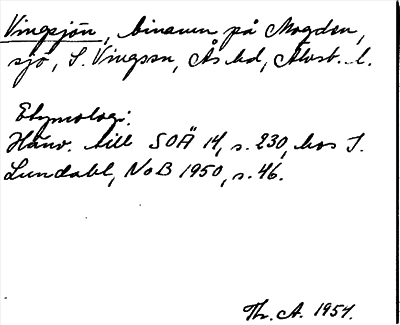 Vingsjön, binamn på Mogden,
sjö, S. Vingsån, Ås hd, Älvsb. l.
Etymologi.
Hänv. till SOÄ 14, s. 230, hos I.
Lundahl, NoB 1950, s. 46.
Th. A. 1954.